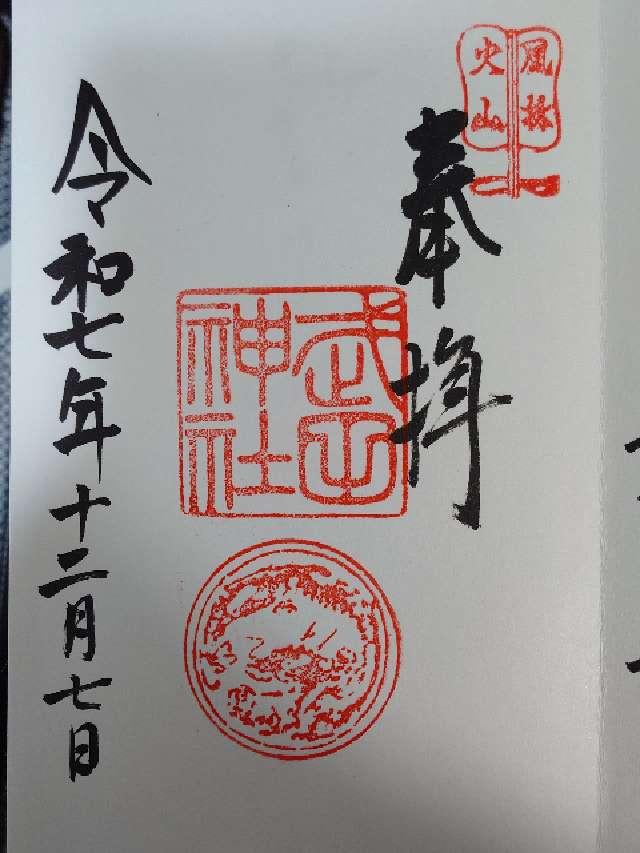 風林
火山
奉拝
武田
神社
令和七年十二月七日